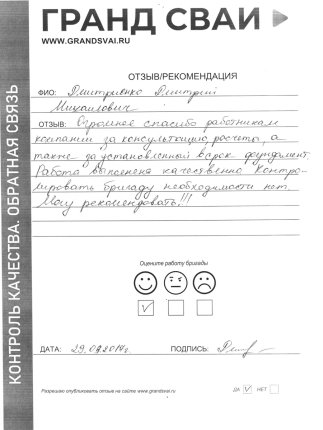 ГРАНД СВАИ
WWW.GRANDSVAI.RU
КОНТРОЛЬ КАЧЕСТВА. ОБРАТНАЯ СВЯЗЬ
ОТЗЫВ/РЕКОМЕНДАЦИЯ
ФИО: Дмитриенко Дмитрий
Михайлович
ОТЗЫВ: Огромное спасибо работникам
компании за консультацию, расчеты, а
также за установленный в срок фундамент.
Работа выполнена качественно. Контро-
лировать бригаду необходимости нет.
Могу рекомендовать!!!
Оцените работу бригады
ДАТА: 29.07.2017г. ПОДПИСЬ:
Разрешаю опубликовать отзыв на сайте www.grandsvai.ru ДА НЕТ